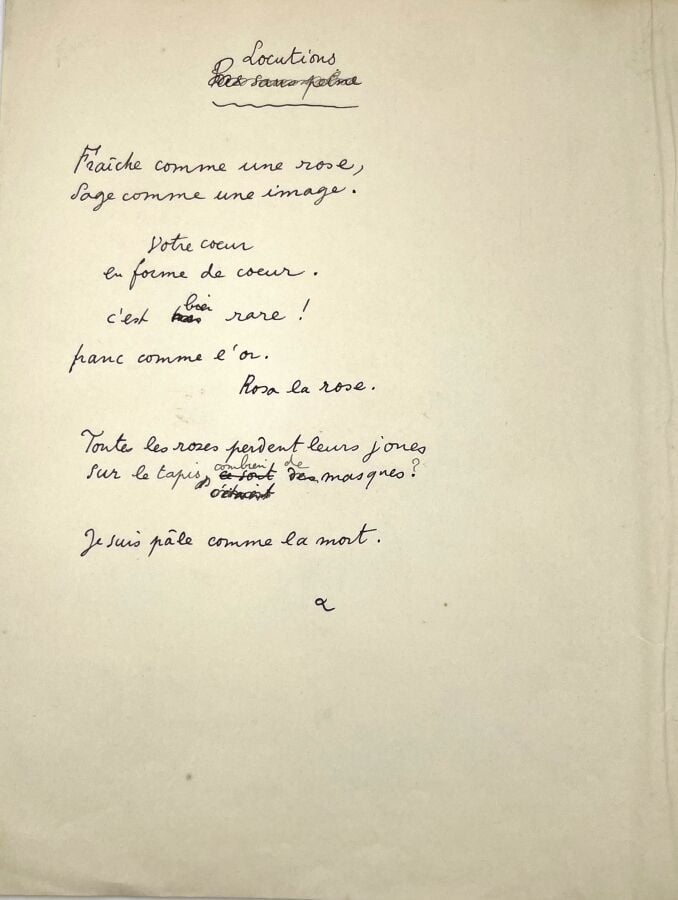 Locutions
Pas sans peine
Fraîche comme une rose,
Sage comme une image.
Votre coeur
en forme de coeur.
c'est bien rare !
franc comme l'or.
Rosa la rose.
Toutes les roses perdent leurs joues
combient de
sur le tapis, ce sont des masques?
Je suis pâle comme la mort.